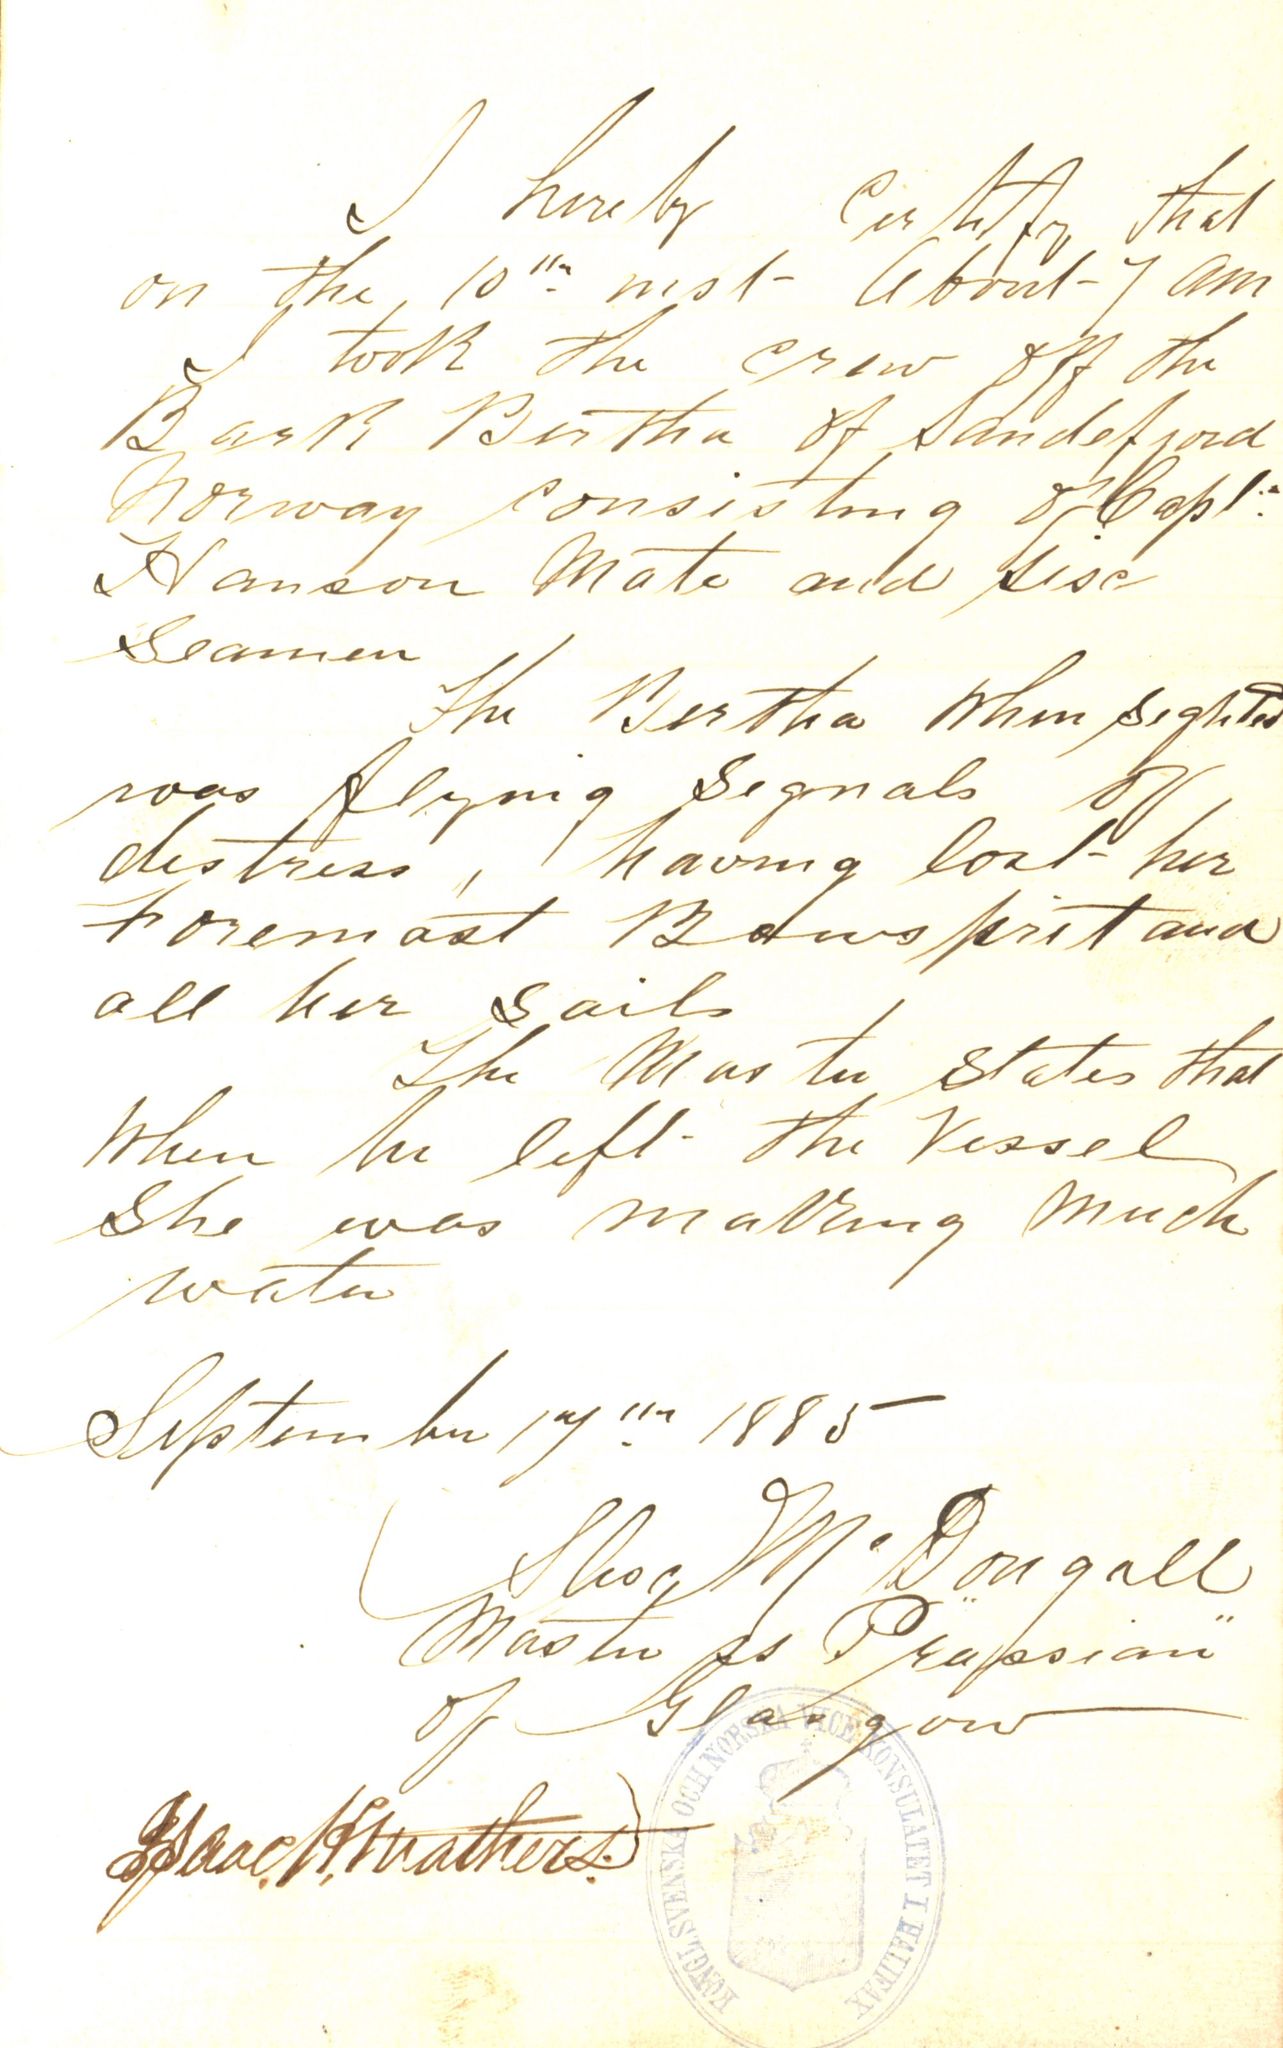 I hereby Certify that
on the 10th inst- About 7 am
I took the crew off the
Bark Bertha of Sandefjord
Norway consisting of Capt.
Hanson Mate and six
Seamen
The Bertha when sighted
was flying Signals of
distress, having lost her
Foremast Bowsprit and
all her Sails
The Master states that
When he left the Vessel
She was making much
water
September 17th 1885
McDougall
Master ss "Prussian"
of Glasgow
Isaac H. Mathers.
KONGL. SVENSKA OCH NORSKA VICE KONSULATET I HALIFAX